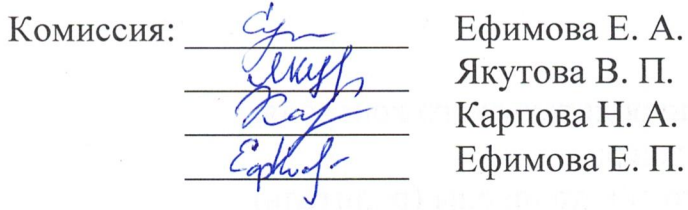 Комиссия: Ефимова Е. А.
Якутова В. П.
Карпова Н. А.
Ефимова Е. П.